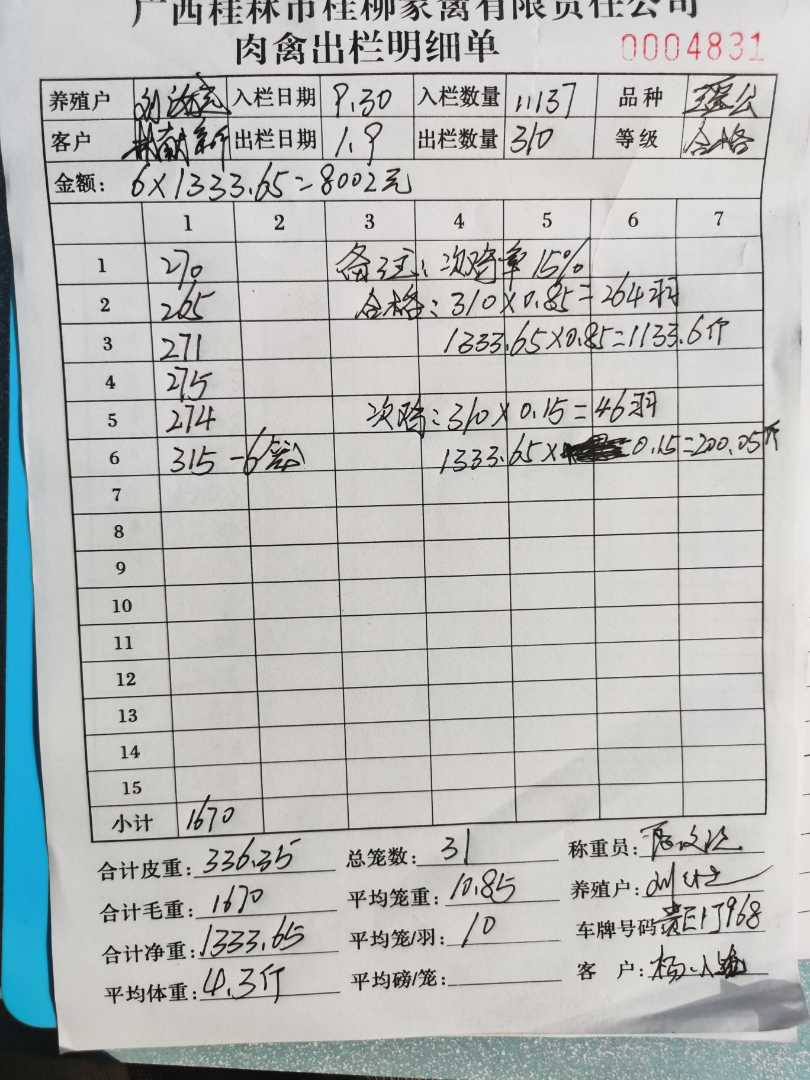 广西桂林市桂柳家禽有限责任公司
肉禽出栏明细单 0004831
养殖户 入栏日期 9.30 入栏数量 11137 品种
客户 出栏日期 1.9 出栏数量 310 等级 合格
金额: 6×1333.65=8002元
1 2 3 4 5 6 7
1 270 备注: 次鸡率15%
2 265 合格: 310×0.85=264羽
3 271 1333.65×0.85=1133.6斤
4 275
5 274 次鸡: 310×0.15=46羽
6 315 - 6 1333.65× 0.15=200.05斤
7
8
9
10
11
12
13
14
15
小计 1670
合计皮重: 336.35 总笼数: 31 称重员:
合计毛重: 1670 平均笼重: 10.85 养殖户: 刘
合计净重: 1333.65 平均笼/羽: 10 车牌号码:
平均体重: 4.3斤 平均磅/笼: 客 户: 杨